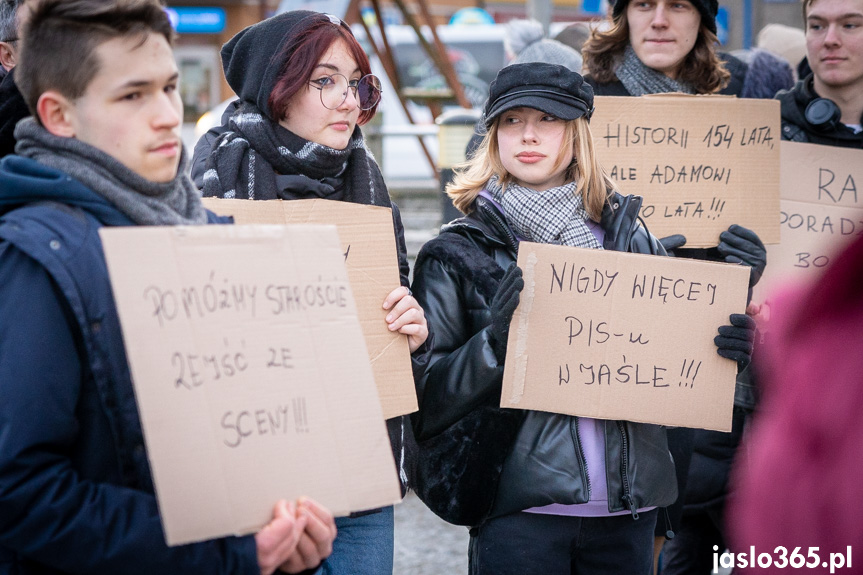 POMÓŻMY STAROŚCIE
ZEJŚĆ ZE
SCENY!!!
NIGDY WIĘCEJ
PIS-u
W JAŚLE!!!
HISTORII 154 LATA,
ALE ADAMOWI
LATA!!!
jaslo365.pl